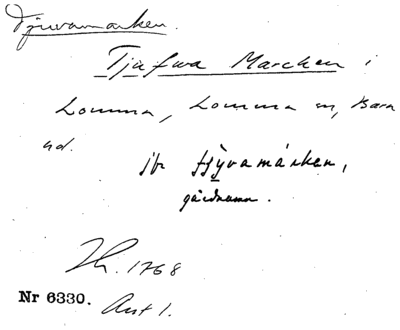 Tjuvamarken.
Tjufwa Marcken i
Lomma, Lomma sn, Bara
hd.
jfr Tjyvamárken,
gårdnamn.
Th. 1768
Nr 6330. Avst 1.